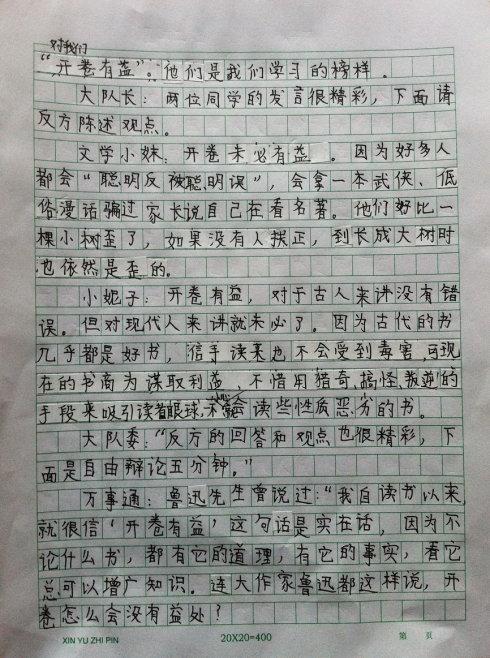 对我们
“开卷有益”。他们是我们学习的榜样。
大队长：两位同学的发言很精彩，下面请
反方陈述观点。
文学小妹：开卷未必有益。因为好多人
都会“聪明反被聪明误”，会拿一本武侠、低
俗漫话骗过家长说自己在看名著。他们好比一
棵小树歪了，如果没有人扶正，到长成大树时
也依然是歪的。
小妮子：开卷有益，对于古人来讲没有错
误。但对现代人来讲就未必了。因为古代的书
几乎都是好书，信手读来也不会受到毒害，可现
在的书商为谋取利益，不惜用猎奇、搞怪、叛逆的
手段来吸引读者眼球，会读些性质恶劣的书。
大队委：“反方的回答和观点也很精彩，下
面是自由辩论五分钟。”
万事通：鲁迅先生曾说过：“我自读书以来
就很信‘开卷有益’这句话是实在话，因为不
论什么书，都有它的道理，有它的事实，看它
总可以增广知识。连大作家鲁迅都这样说，开
卷怎么会没有益处？
XIN YU ZHI PIN 20X20=400 第 页